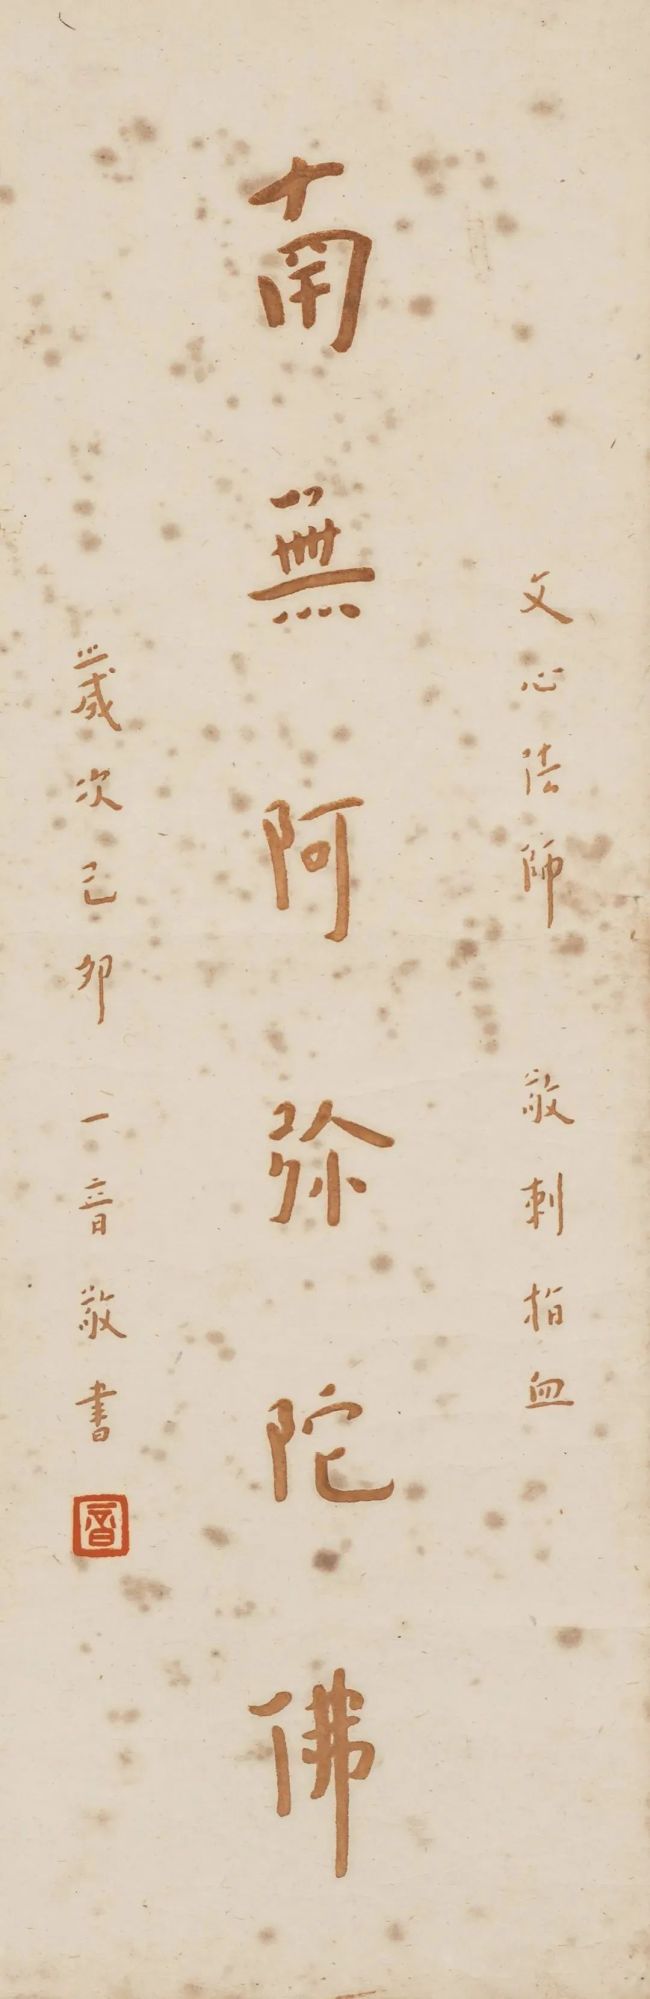 文心法師 敬刺指血
南無阿弥陀佛
歲次己卯 一音敬書
一音